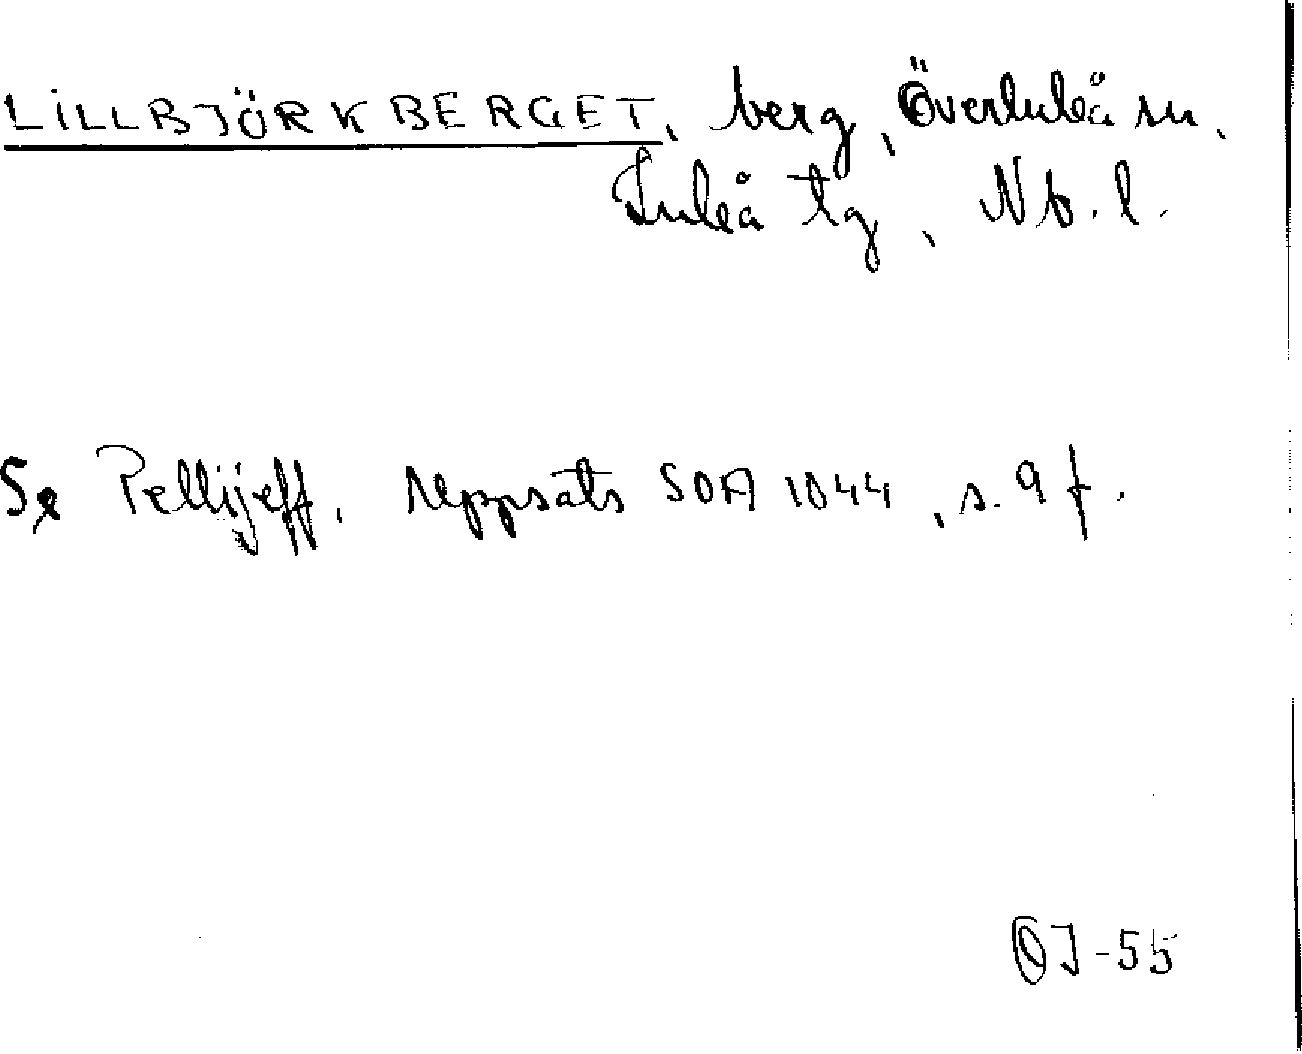 LILLBJÖRKBERGET, berg, Överluleå sn,
Luleå tg, Nb. l.
Se Pellijeff, uppsats SOA 1044, s. 9 f.
OJ-55